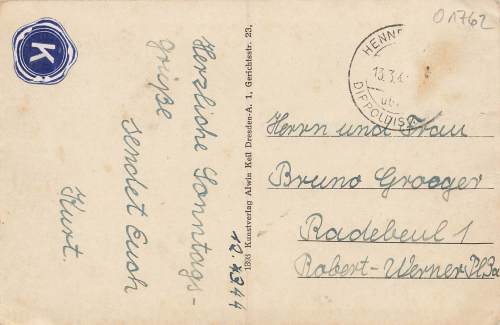 K
Herzliche Sonntags-
grüße
sendet Euch
Kurt.
12.3.44
1893 Kunstverlag Alwin Keil Dresden-A. 1, Gerichtsstr. 23,
01762
HENN
13.3.4
üb.
DIPPOLDIS
Herrn und Frau
Bruno Groeger
Radebeul 1
Robert-Werner Pl.